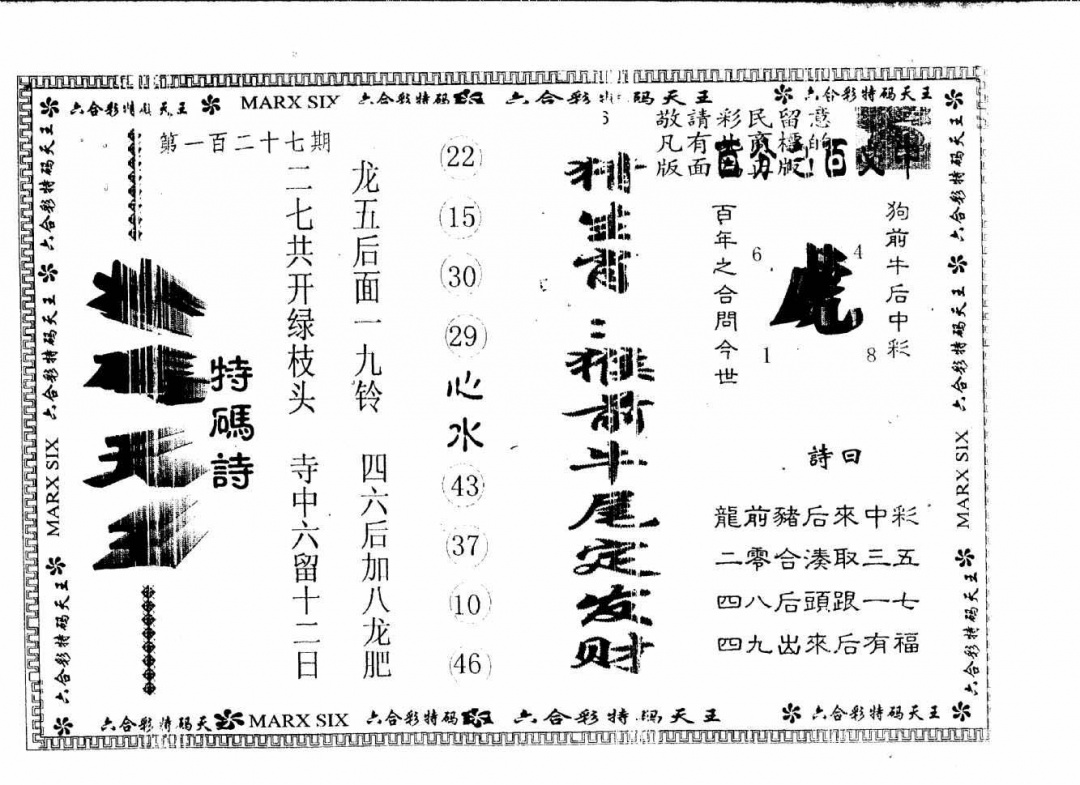 六合彩特码天王 MARX SIX 六合彩特码 六合彩 码天王 六合彩特码天王
敬請彩民留意
狗前牛后中彩
6 4
虎
1 8
百年之合問今世
詩曰
龍前豬后來中彩
二零合湊取三五
四八后頭跟一七
四九出來后有福
猴前牛尾定发财
22
15
30
29
心水
43
37
10
46
第一百二十七期
龙五后面一九铃 四六后加八龙肥
二七共开绿枝头 寺中六留十二日
特碼詩
六合彩特码天王 六合彩特码天王 MARX SIX 六合彩特码天王
六合彩特码天王 六合彩特码天王 MARX SIX 六合彩特码天王
六合彩特码天 MARX SIX 六合彩特码 六合彩特码天王 六合彩特码天王